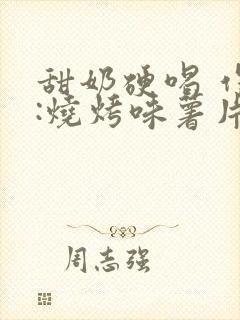 甜奶硬唱
:燒烤味薯片
周志强